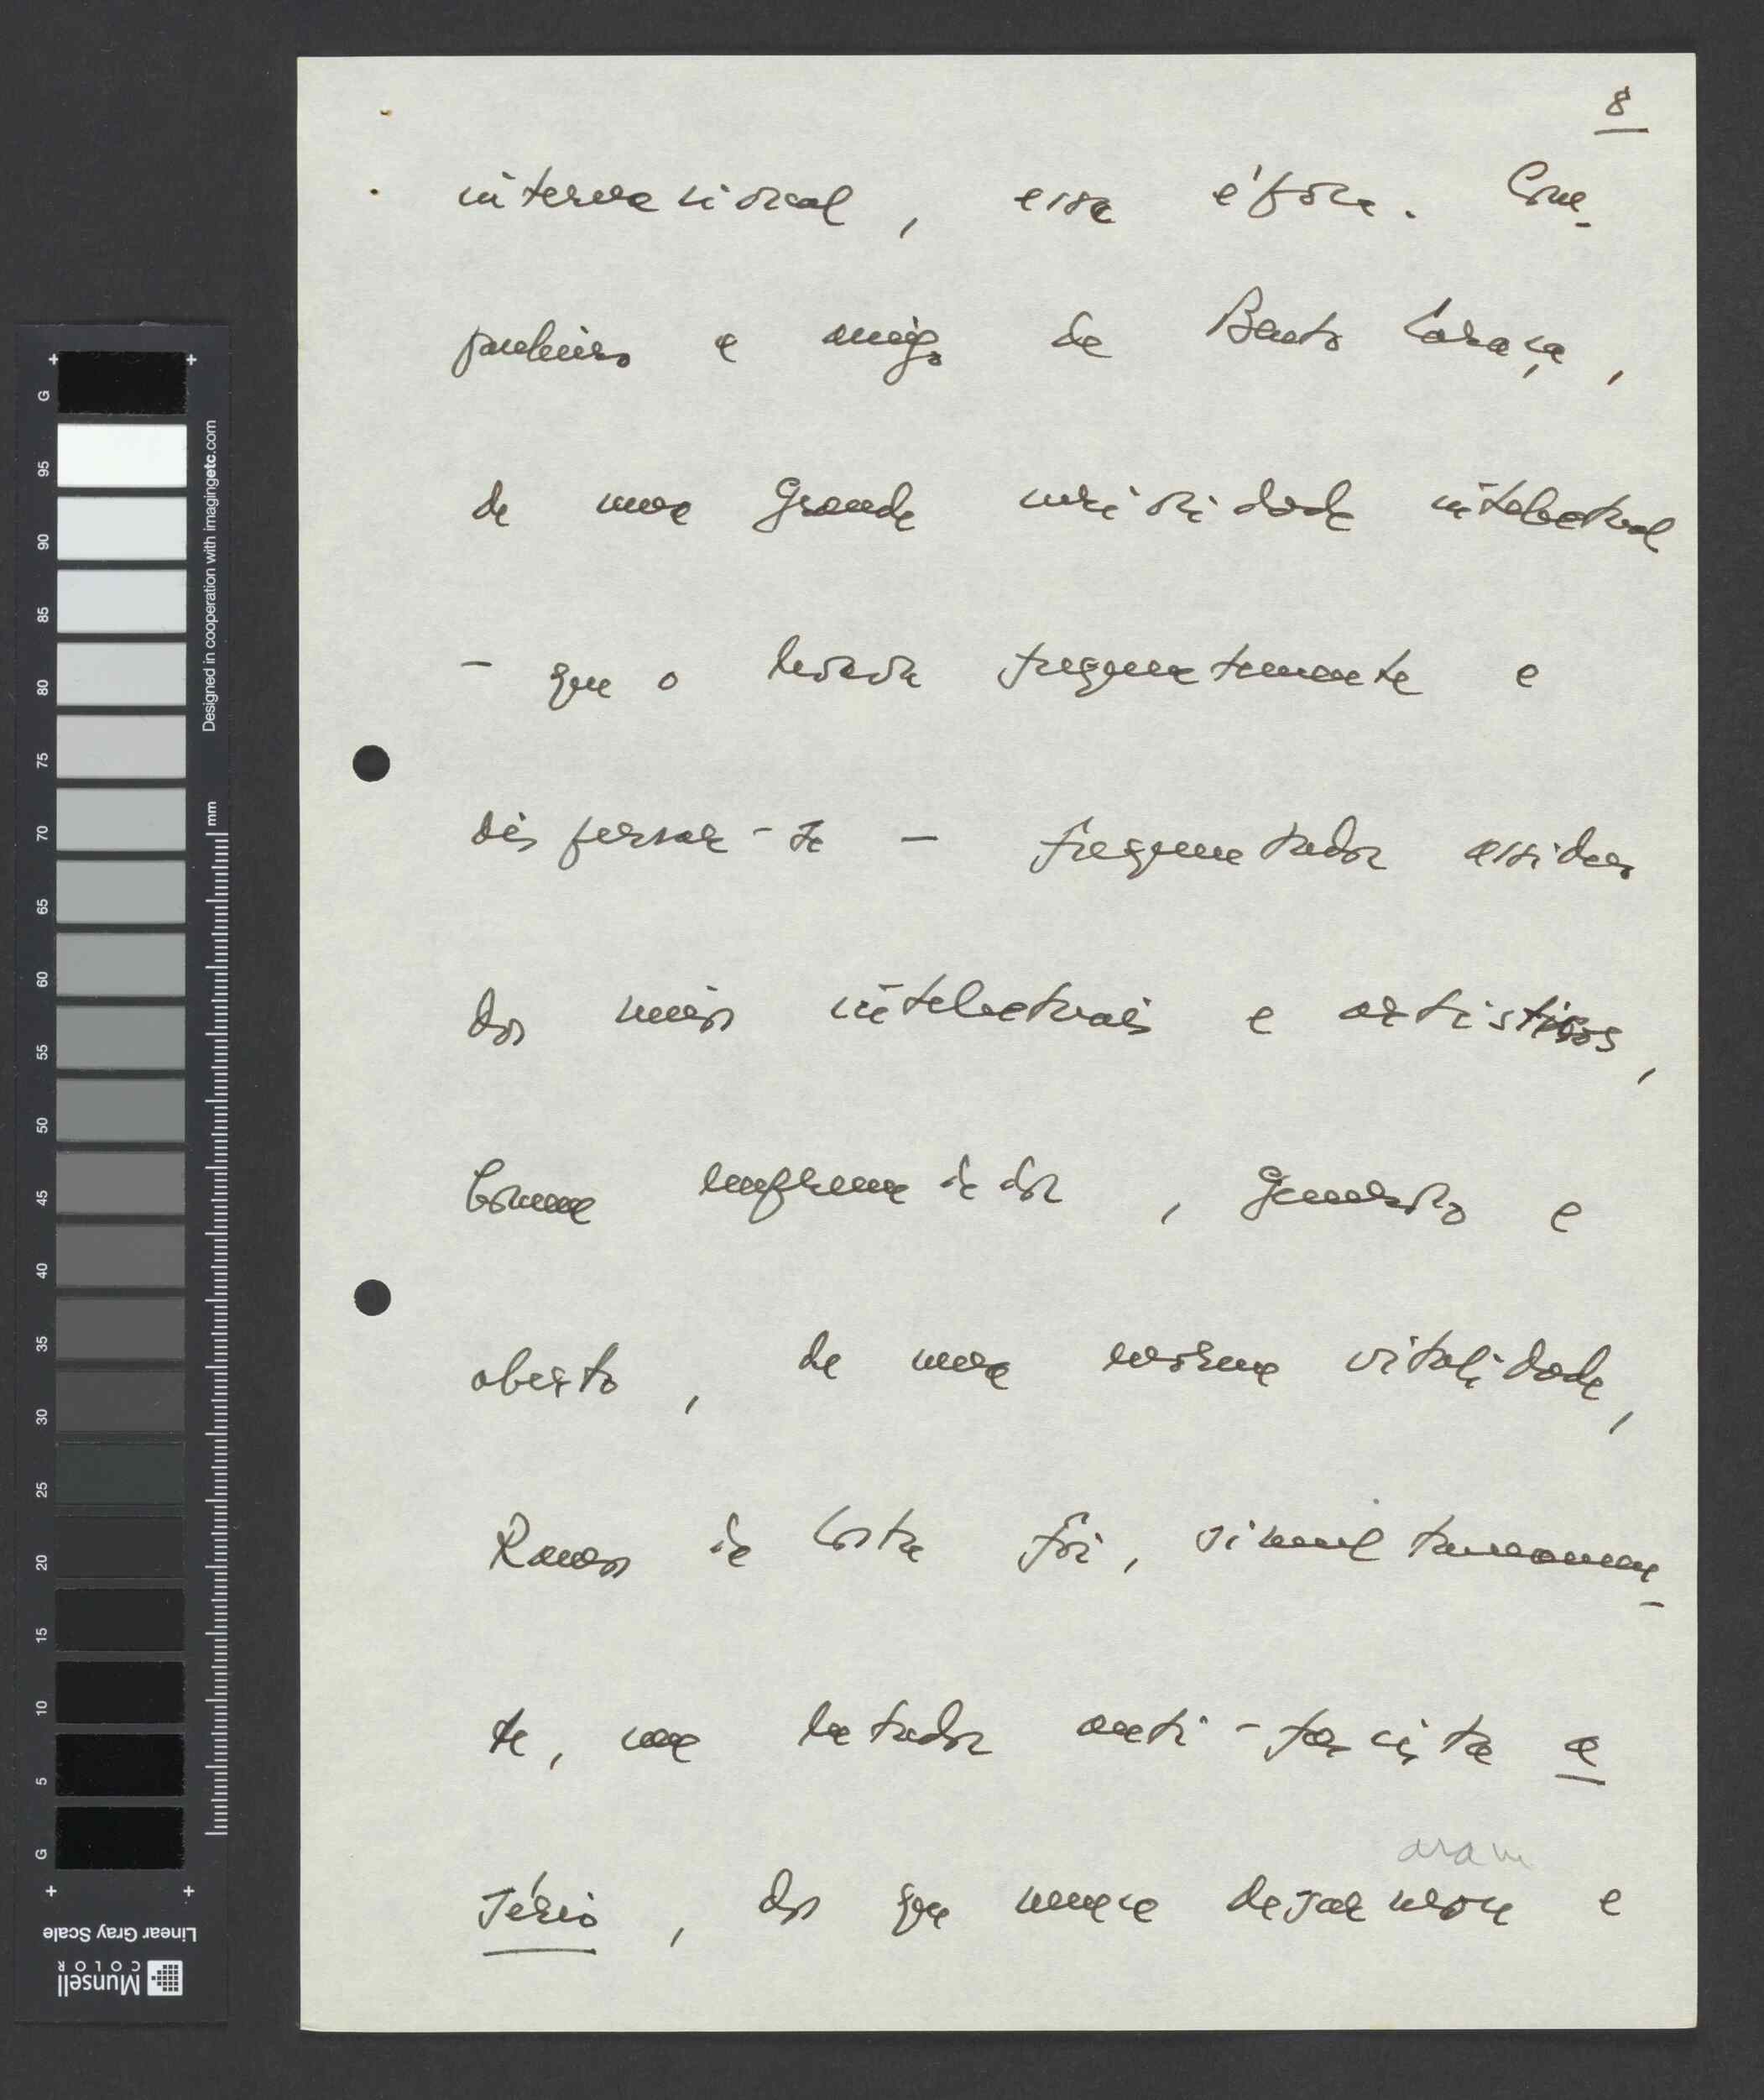 8
internacional, essa época. Com-
panheiro e amigo de Bento Caraça,
de uma grande curiosidade intelectual
- que o levava frequentemente a
dispersar-se - frequentador assíduo
dos meios intelectuais e artísticos,
homem empreendedor, generoso e
aberto, de uma enorme vitalidade,
Ramos da Costa foi, simultaneamen-
te, um lutador anti-fascista a
sério, dos que nunca desarmou e
aram
G 95 90 85 80 75 70 65 60 55 50 45 40 35 30 25 20 15 10 5 G
Designed in cooperation with imagingetc.com
mm
Linear Gray Scale
Munsell
COLOR